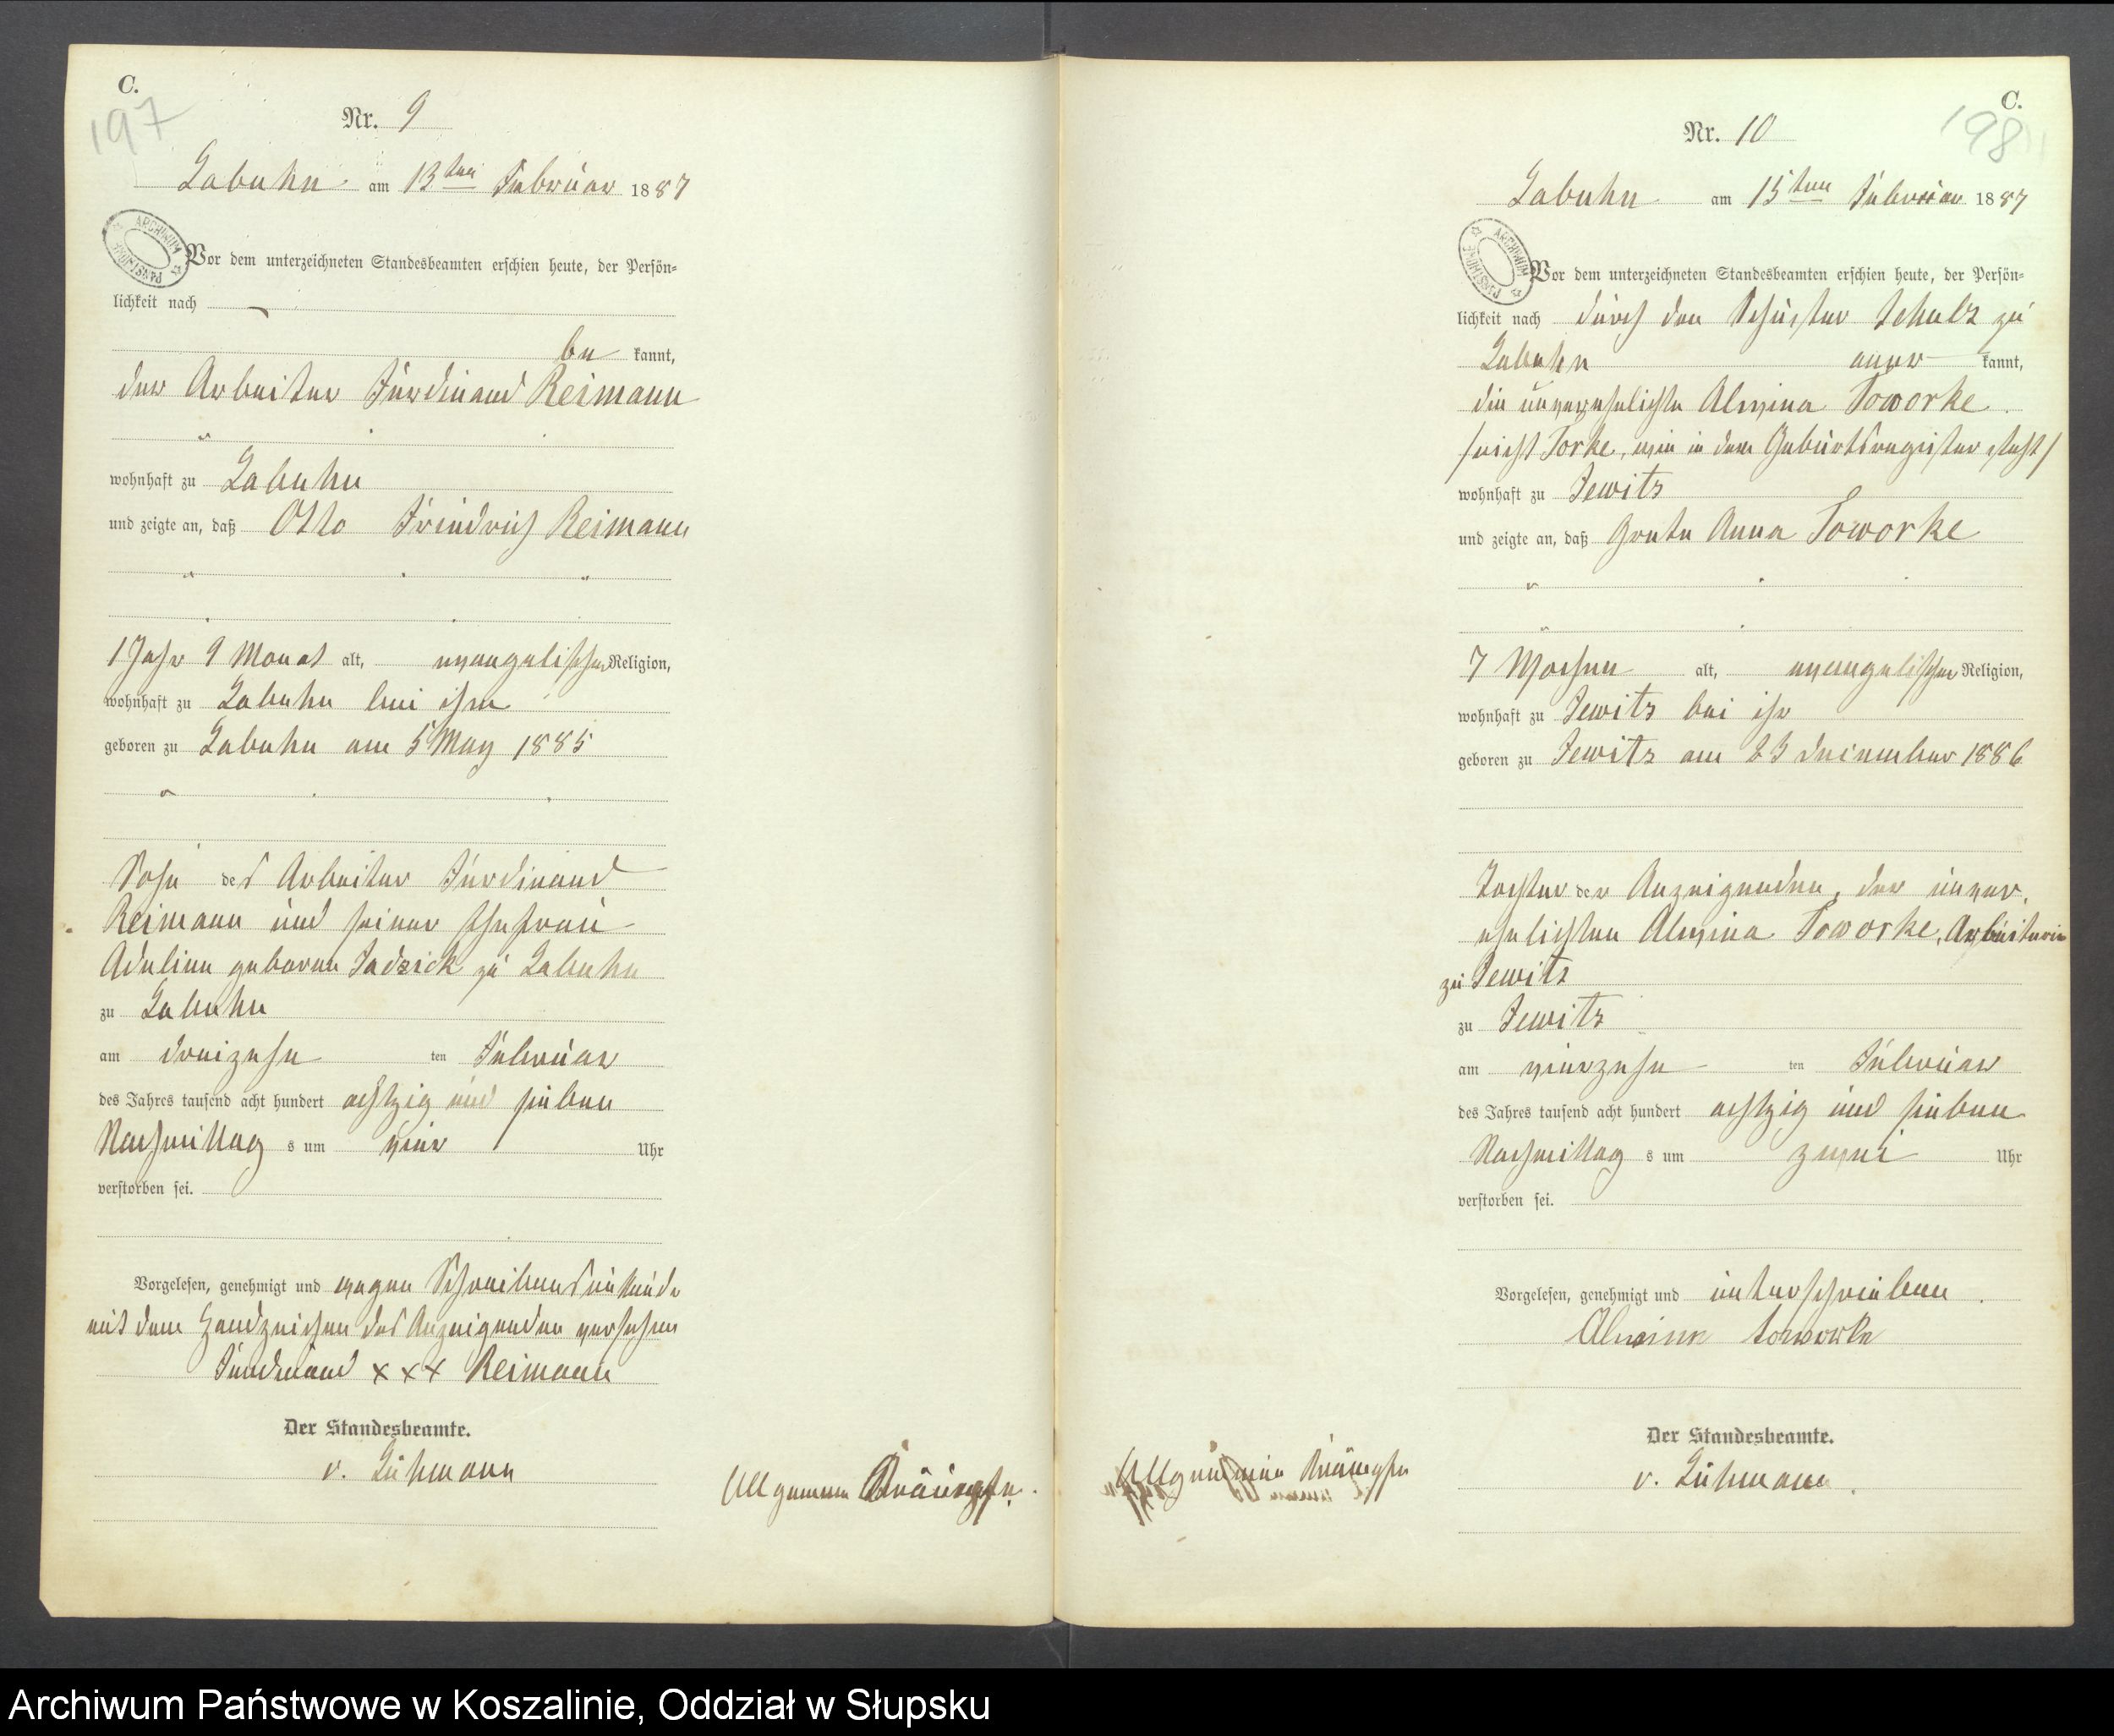 C.
197
Nr. 9
Labuhn am 13ten Februar 1887
ARCHIWUM PAŃSTWOWE
Vor dem unterzeichneten Standesbeamten erschien heute, der Persön-
lichkeit nach
be kannt,
der Arbeiter Ferdinand Reimann
wohnhaft zu Labuhn
und zeigte an, daß Otto Friedrich Reimann
1 Jahr 9 Monat alt, evangelischer Religion,
wohnhaft zu Labuhn bei ihm
geboren zu Labuhn am 5 May 1885
Sohn des Arbeiter Ferdinand
Reimann und seiner Ehefrau
Adeline geborene Jadzick zu Labuhn
zu Labuhn
am dreizehn ten Februar
des Jahres tausend acht hundert achtzig und sieben
Nachmittag s um vier Uhr
verstorben sei.
Vorgelesen, genehmigt und wegen Schreibensunkunde
mit dem Handzeichen des Anzeigenden versehen
Ferdinand xxx Reimann
Der Standesbeamte.
v. Lühmann
C.
198
Nr. 10
Labuhn am 15ten Februar 1887
ARCHIWUM PAŃSTWOWE
Vor dem unterzeichneten Standesbeamten erschien heute, der Persön-
lichkeit nach durch den Schuster Schulz zu
Labuhn aner kannt,
die unverehelichte Alwina Toworke
/nicht Torke, wie in dem Geburtsregister steht/
wohnhaft zu Jewitz
und zeigte an, daß Grete Anna Toworke
7 Wochen alt, evangelischer Religion,
wohnhaft zu Jewitz bei ihr
geboren zu Jewitz am 23 December 1886
Tochter der Anzeigenden, der unver-
ehelichten Alwina Toworke, Arbeiterin
zu Jewitz
zu Jewitz
am vierzehn ten Februar
des Jahres tausend acht hundert achtzig und sieben
Nachmittag s um zwei Uhr
verstorben sei.
Vorgelesen, genehmigt und unterschrieben.
Alwine Toworke
Der Standesbeamte.
v. Lühmann.
Archiwum Państwowe w Koszalinie, Oddział w Słupsku